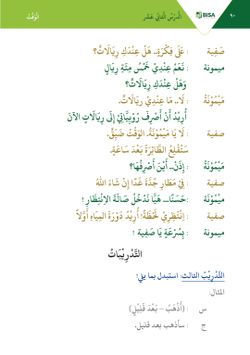 ٩٠ BISA الدَّرْسُ الثَّانِيْ عَشَر الْوَقْتُ
صَفِيَة : عَلَى فِكْرَةٍ.. هَلْ عِنْدَكِ رِيَالَاتٌ؟
ميمونة : نَعَمْ عِنْدِيْ خَمْسُ مِئَةِ رِيَالٍ
وَهَلْ عِنْدَكِ رِيَالَاتٌ؟
مَيْمُوْنَةُ : لَا.. مَا عِنْدِيْ رِيَالَاتٌ.
أُرِيْدُ أَنْ أَصْرِفَ رُوْبِيَّاتِيْ إِلَى رِيَالَاتٍ الآنَ
صفية : لَا يَا مَيْمُوْنَةُ. الوَقْتُ ضَيِّقٌ.
سَتُقْلِعُ الطَّائِرَةُ بَعْدَ سَاعَةٍ.
مَيْمُوْنَةُ : إِذَنْ.. أَيْنَ أَصْرِفُهَا؟
صفية : فِيْ مَطَارِ جُدَّةَ غَدًا إِنْ شَاءَ اللهُ
مَيْمُوْنَةُ : حَسَنًا.. هَيَّا نَدْخُلُ صَالَةَ الِانْتِظَارِ!
صفية : اِنْتَظِرِيْ لَحْظَةً؛ أُرِيْدُ دَوْرَةَ الْمِيَاهِ أَوَّلاً
ميمونة : بِسُرْعَةٍ يَا صَفِيَة !
التَّدْرِيْبَاتُ
التَّدْرِيْبُ الثالث: استبدل بما يلي!
المثال:
س : (أَذْهَبُ – بَعْدَ قَلِيْلٍ)
ج : سأذهب بعد قليل.